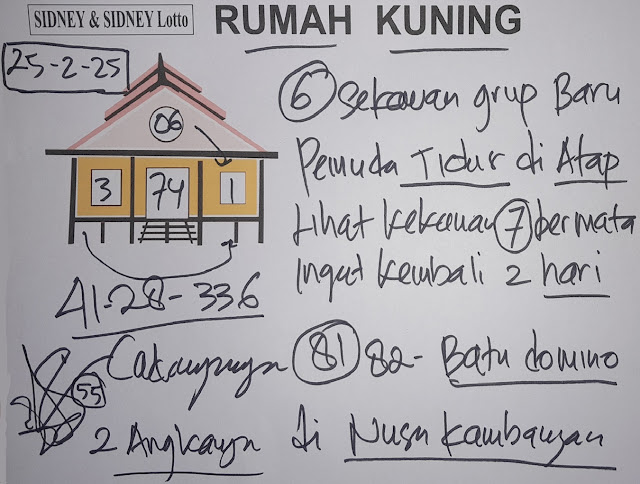 SIDNEY & SIDNEY Lotto
RUMAH KUNING
25-2-25
06
3 74 1
41-28-336
6 sekawan grup Baru
Pemuda Tidur di Atap
Lihat kekanan 7 bermata
Ingat kembali 2 hari
81 82- Batu domino
55
2 Angkanya di Nusa Kambangan